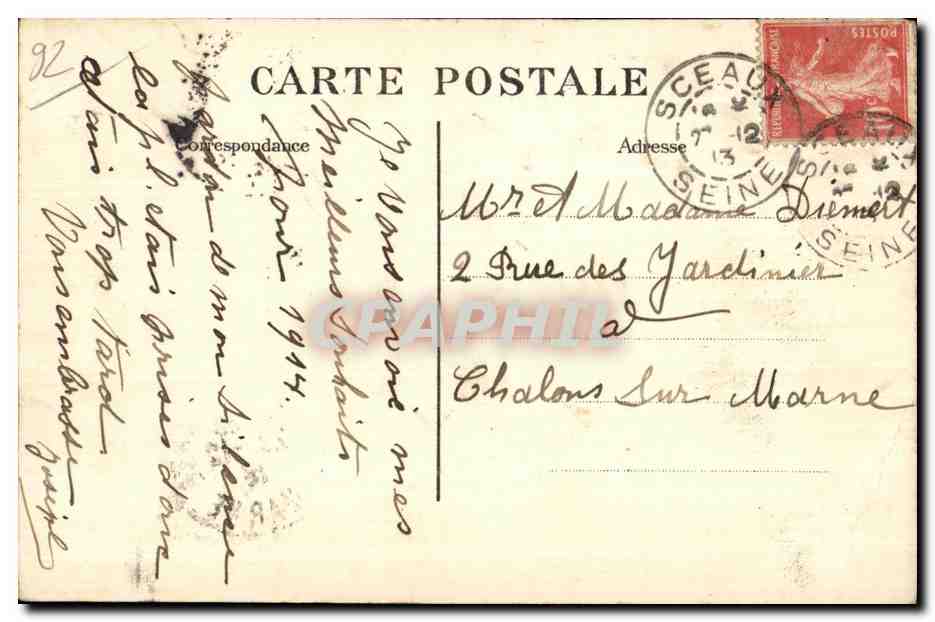 92
CARTE POSTALE
Correspondance
Adresse
SCEAUX
7 - 12
13
SEINE
POSTES
REPUBLIQUE FRANÇAISE
10c
SEINE
Mr et Madame Diemert
2 Rue des Jardinier
a
Chalons Sur Marne
Je Vous envoie mes
Meilleurs Souhaits
Pour 1914.
pardon de mon Silence
la pl. etais prises donc
etais trop tard
Vous embrasse
Joseph
CPAPHIL